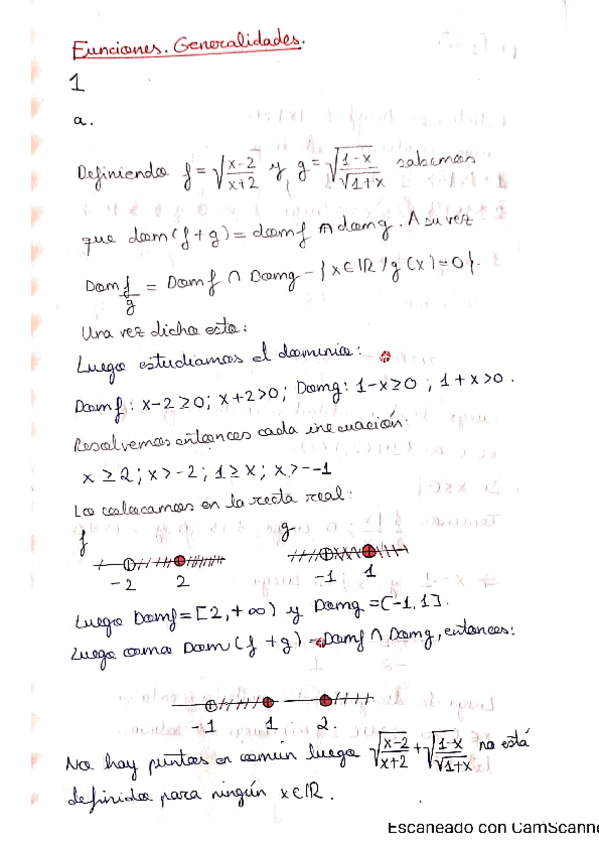 Funciones. Generalidades.
1
a.
Definiendo f = √(x-2 / x+2) y g = √(1-x) / √(1+x) sabemos
que dom(f+g) = domf ∩ domg. A su vez
Dom f/g = Domf ∩ Domg - {x∈IR / g(x)=0}.
Una vez dicho esto:
Luego estudiamos el dominio:
Domf: x-2≥0; x+2>0; Domg: 1-x≥0; 1+x>0.
Resolvemos entonces cada inecuación:
x ≥ 2; x>-2; 1≥x; x>-1
Lo colocamos en la recta real:
f g
-2 2 -1 1
Luego Domf=[2,+∞) y Domg=(-1,1].
Luego como Dom(f+g)=Domf ∩ Domg, entonces:
-1 1 2.
No hay puntos en común luego √(x-2 / x+2) + √(1-x) / √(1+x) no está
definida para ningún x∈IR.
Escaneado con CamScanne